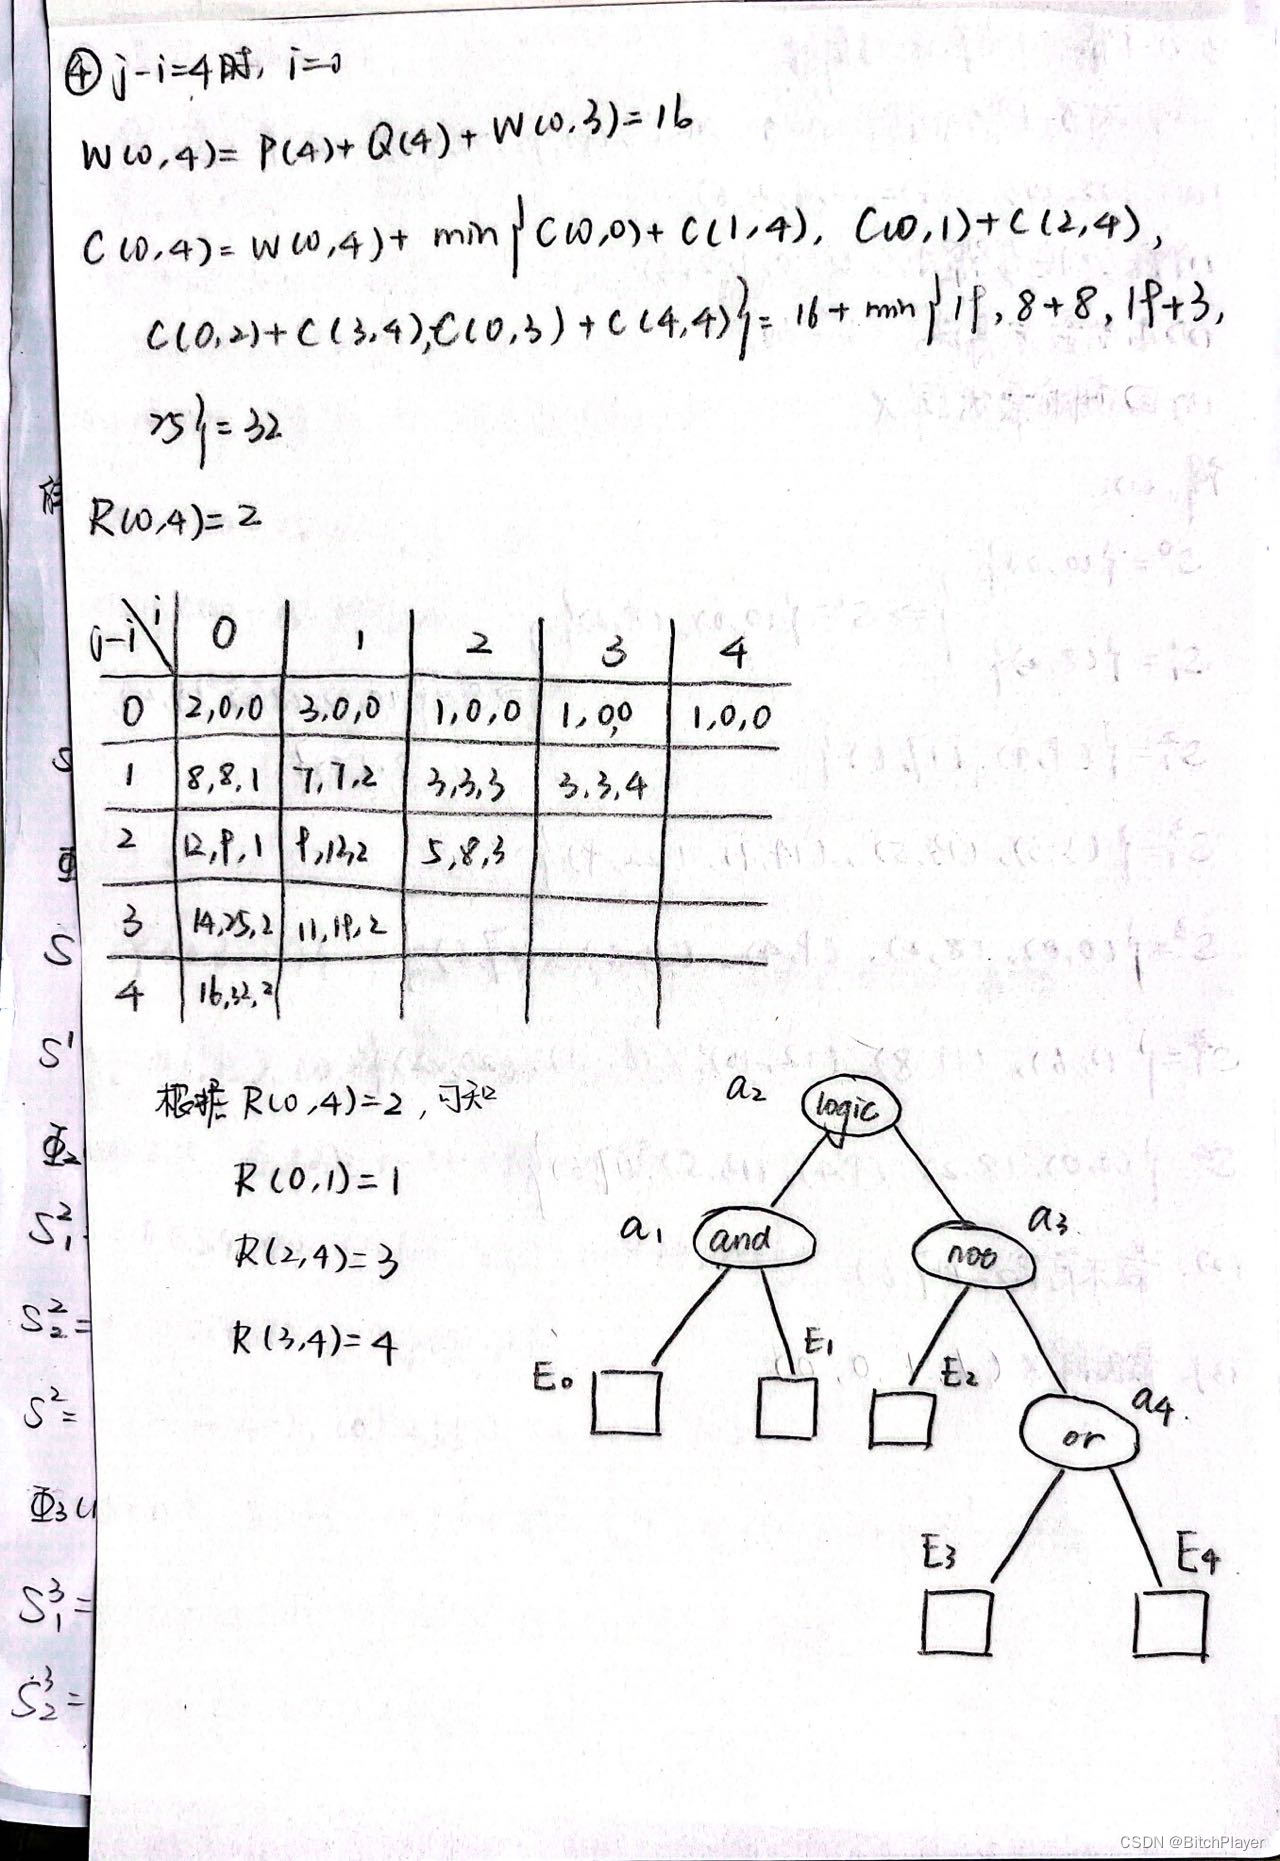 ④ j-i=4时, i=0
W(0,4)= P(4)+Q(4)+W(0,3)=16
C(0,4)=W(0,4)+ min{C(0,0)+C(1,4), C(0,1)+C(2,4),
C(0,2)+C(3,4),C(0,3)+C(4,4)}=16+min{19,8+8,19+3,
25}=32
R(0,4)=2
j-i i 0 1 2 3 4
0 2,0,0 3,0,0 1,0,0 1,0,0 1,0,0
1 8,8,1 7,7,2 3,3,3 3,3,4
2 12,9,1 9,12,2 5,8,3
3 14,25,2 11,19,2
4 16,32,2
根据 R(0,4)=2, 可知
R(0,1)=1
R(2,4)=3
R(3,4)=4
a2 logic
a1 and a3 noo
E0 E1 E2 a4 or
E3 E4
S
Φ
S
S1
Φ2
S1 2
S2 2=
S2=
Φ3(
S1 3=
S2 3=
CSDN @BitchPlayer